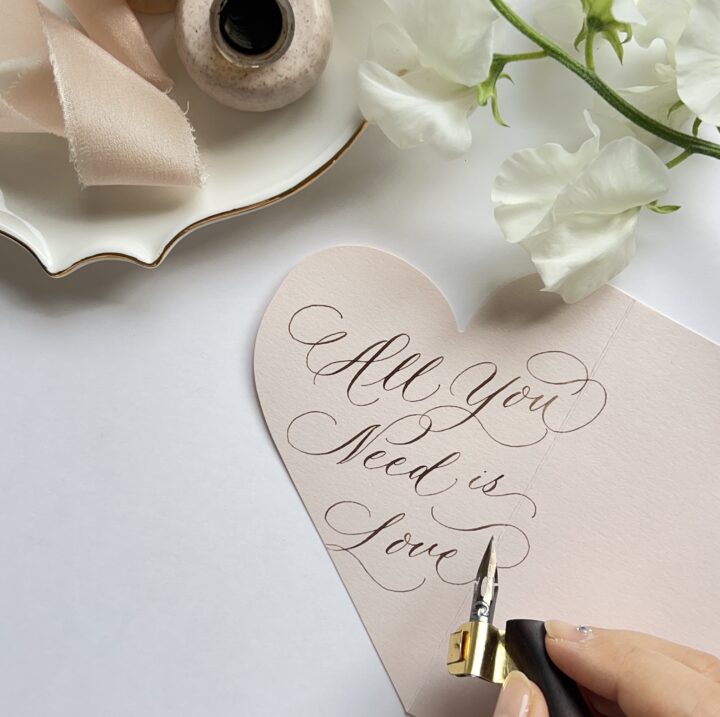 All You
Need is
Love